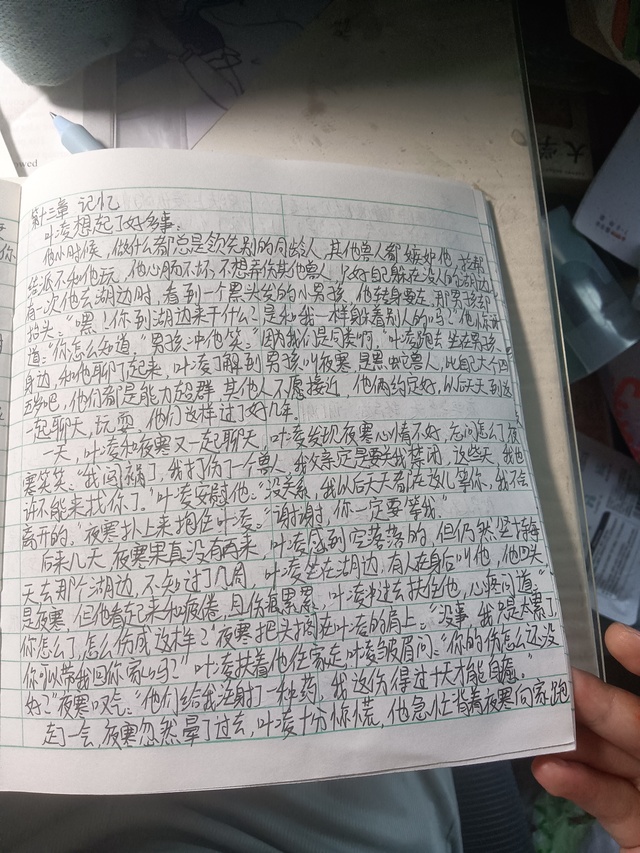 第十三章 记忆
叶凌想起了好多事:
他小时候,做什么都总是领先别的同龄人,其他兽人都嫉妒他,拉帮
结派不和他玩,他心肠不坏,不想弄伤其他兽人,只好自己躲在没人的湖边
有一次他去湖边时,看到一个黑头发的小男孩,他转身要走,那男孩却
抬头:"嘿!你到湖边来干什么?是和我一样躲着别人的吗?"他
道:"你怎么知道,"男孩冲他笑:"因为我们是同类啊,"叶凌跑去坐在男孩
身边,和他聊了起来,叶凌了解到男孩叫夜寒,是黑蛇兽人,比自己大个四
五岁吧,他们都是能力超群,其他人不愿接近,他俩约定好,以后天天到这
一起聊天,玩耍,他们这样过了好几年。
一天,叶凌和夜寒又一起聊天,叶凌发现夜寒心情看不好,忘问怎么了夜
寒笑笑:"我闯祸了,我打伤了一个兽人,我父亲定是要关我禁闭,这些天,我也
许不能来找你了。"叶凌安慰他:"没关系,我以后天天都在这儿等你,我不会
离开的。"夜寒扑上来抱住叶凌:"谢谢,你一定要等我"
后来几天,夜寒果真没有再来,叶凌感到空落落的,但仍然坚持每
天去那个湖边,不知过了几周,叶凌坐在湖边,有人在身后叫他,他回头
是夜寒,但他看起来和疲倦,且伤痕累累,叶凌冲过去扶住他,心疼问道:"
你怎么了,怎么伤成这样?"夜寒把头搁在叶凌的肩上:"没事,我只是太累了,
你可以带我回你家山吗?"叶凌扶着他往家走,叶凌皱眉问:"你的伤怎么还没
好?"夜寒叹气:"他们给我注射了一种药,我这伤得过十天才能自愈。"
走了一会,夜寒忽然晕了过去,叶凌十分惊慌,他急忙背着夜寒向家跑
大学
owed
你